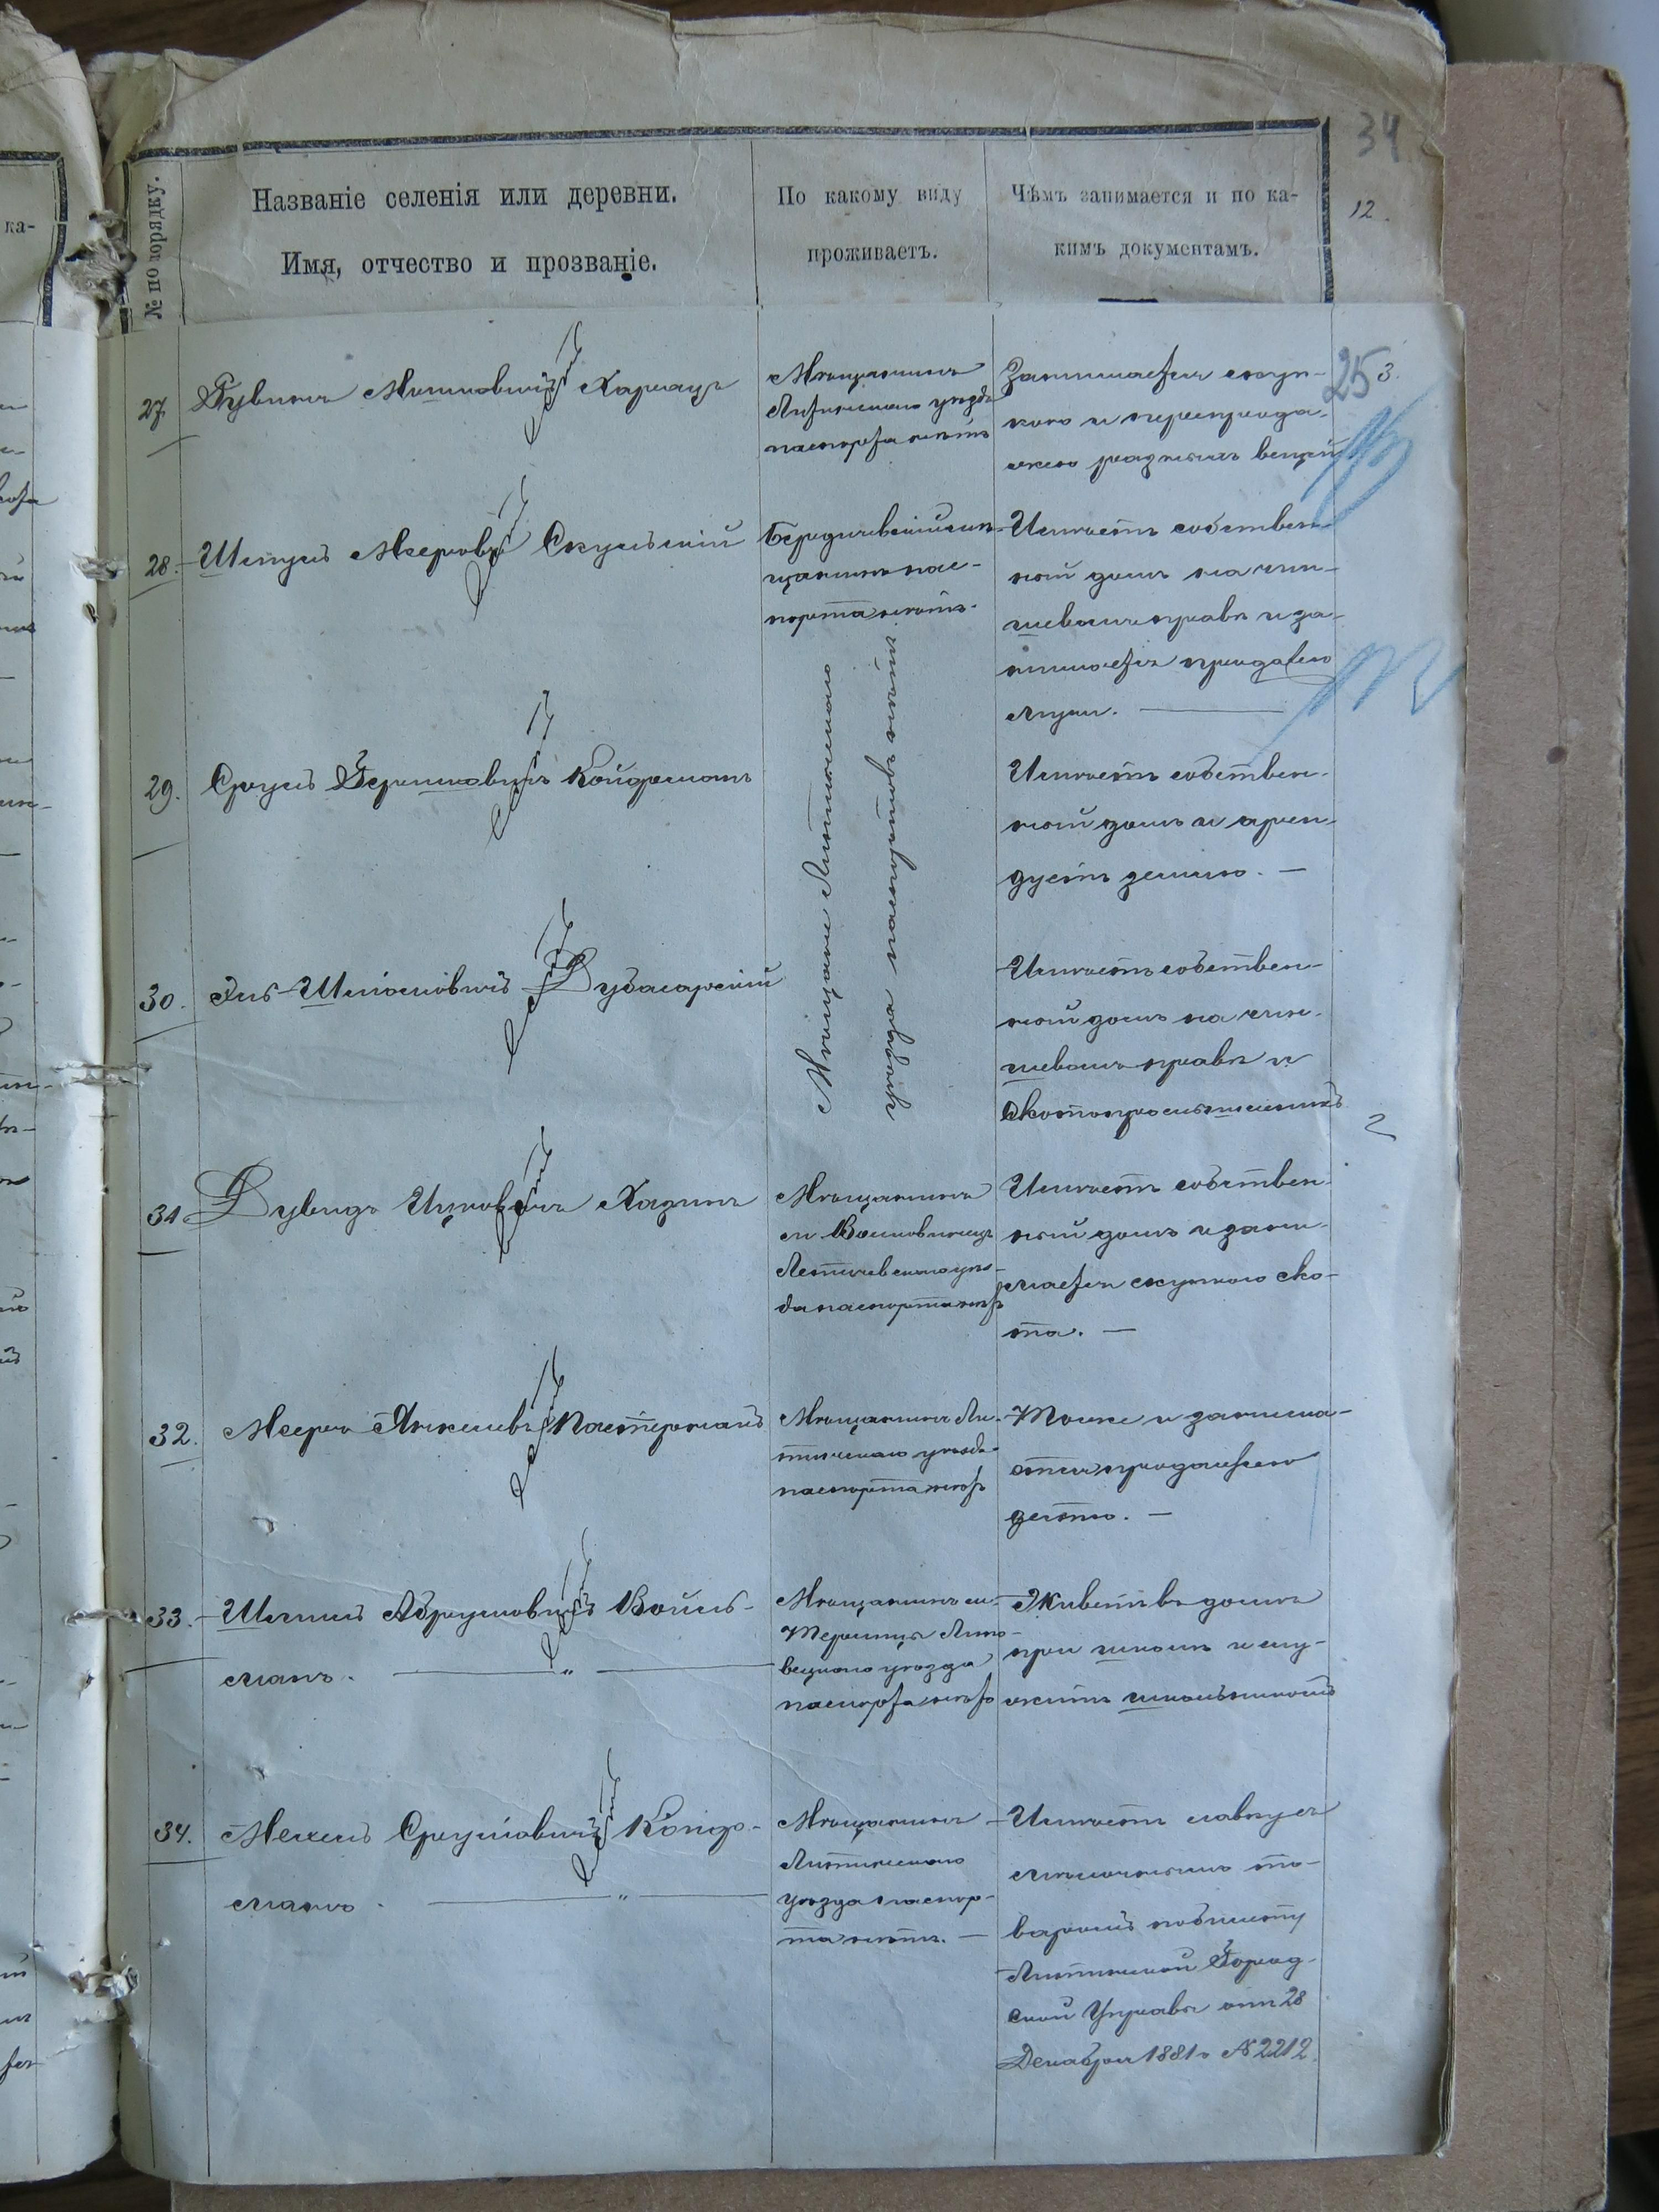 34
12.
№ по порядку.
Названіе селенія или деревни.
Имя, отчество и прозваніе.
По какому виду
проживаетъ.
Чѣмъ занимается и по ка-
кимъ документамъ.
25
3.
27
Рувинъ Мошковичъ
Мѣщанинъ
Литинскаго уѣзда
паспорта нѣтъ
Занимается скуп-
кою и перепрода-
жею разныхъ вещей
28.
Шмуль Мееровъ Скульскій
Бердичевскій мѣ-
щанинъ пас-
порта нѣтъ.
Имѣетъ собствен-
ный домъ на чин-
шевомъ правѣ и за-
нимается продажею
муки.
29.
Сруль Гершковичъ Койфманъ
Мѣщане Литинского
уѣзда паспортовъ нѣтъ
Имѣетъ собствен-
ный домъ и арен-
дуетъ землю. —
30.
Эль-Шліомовичъ Дубасарскій
Имѣетъ собствен-
ный домъ на чин-
шевомъ правѣ и
скотопромышленникъ
31
Дувидъ Ицковичъ Хазинъ
Мѣщанинъ
м. Волковинецъ
Летичевского уѣз-
да паспорта нѣтъ
Имѣетъ собствен-
ный домъ и зани-
мается скупкою ско-
та. —
32.
Мееръ Янкелевъ Пастернакъ
Мѣщанинъ Ли-
тинскаго уѣзда
паспорта нѣтъ
Тоже и занима-
ется продажею
дегтю. —
33.
Шмиль Абрумовичъ Войль-
манъ. — " —
Мѣщанинъ м.
Липо-
вецкаго уѣзда
паспорта нѣтъ
Живетъ въ домѣ
при школѣ и слу-
житъ школьникомъ
34.
Мехель Сруліовичъ Койф-
манъ. — " —
Мѣщанинъ
Литинскаго
уѣзда паспор-
та нѣтъ. —
Имѣетъ лавку съ
мѣлочнымъ то-
варомъ по билету
Литинской Город-
ской Управы отъ 28
Декабря 1881 г. № 2212.